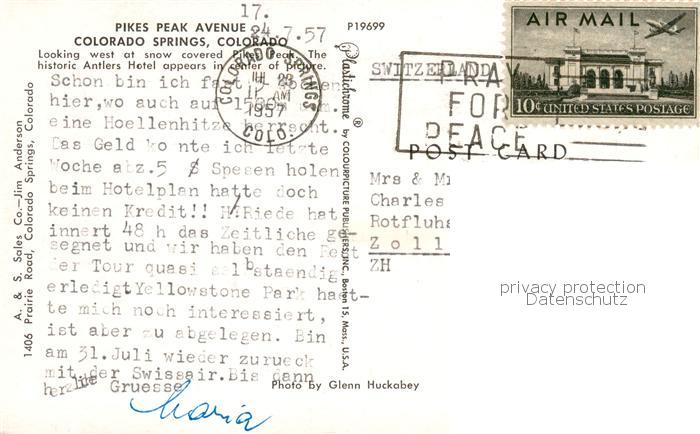 17.
24.7.57
PIKES PEAK AVENUE
COLORADO SPRINGS, COLORADO
Looking west at snow covered Pikes Peak. The
historic Antlers Hotel appears in center of picture.
P19699
Schon bin ich
hier, wo auch auf
eine Hoellenhitze herrscht.
Das Geld ko nte ich letzte
Woche abz.5 $ Spesen holen
beim Hotelplan hatte doch
keinen Kredit!! H/Riede hat
innert 48 h das Zeitliche ge-
segnet und wir haben den Rest
der Tour quasi selbstaendig
erledigt Yellowstone Park haet-
te mich noch interessiert,
ist aber zu abgelegen. Bin
am 31.Juli wieder zurueck
mit der Swissair. Bis dann
herzlite Gruesse
Maria
A. & S. Sales Co.—Jim Anderson
1406 Prairie Road, Colorado Springs, Colorado
COLORADO SPRINGS
JUL 23
AM
1957
COLO.
Plastichrome ® by COLOURPICTURE PUBLISHERS, INC., Boston 15, Mass., U.S.A.
Photo by Glenn Huckabey
SWITZERLAND
PRAY
FOR
PEACE
AIR MAIL
10¢ UNITED STATES POSTAGE
POST CARD
Mrs & Mr
Charles
Rotfluhs
Zoll
ZH
privacy protection
Datenschutz